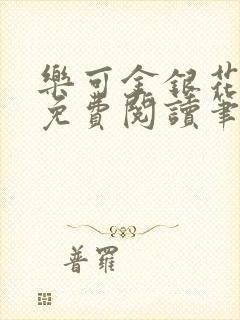 樂可金銀花
免費閱讀筆
普羅